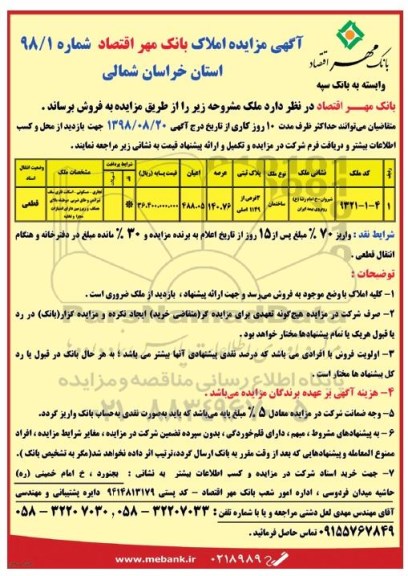 آگهی مزایده املاک بانک مهر اقتصاد شماره ۹۸/۱
استان خراسان شمالی
بانک مهر اقتصاد
وابسته به بانک سپه
بانک مهر اقتصاد در نظر دارد ملک مشروحه زیر را از طریق مزایده به فروش برساند .
متقاضیان می‌توانند حداکثر ظرف مدت ۱۰ روز کاری از تاریخ درج آگهی ۱۳۹۸/۰۸/۲۰ جهت بازدید از محل و کسب
اطلاعات بیشتر و دریافت فرم شرکت در مزایده و تکمیل و ارائه پیشنهاد قیمت به نشانی زیر مراجعه نمایند .
ردیف کد ملک نشانی ملک نوع ملک پلاک ثبتی عرصه اعیان قیمت پایه (ریال) شرایط پرداخت مشخصات ملک وضعیت انتقال اسناد
۱ ۹۳۲۱-۱-۴ ساختمان ۱۴۰.۷۶ ۴۸۸.۰۵ ۳۶.۴۰۰.۰۰۰.۰۰۰ * قطعی
شرایط نقد : واریز ۷۰ ٪ مبلغ پس از ۱۵ روز از تاریخ اعلام به برنده مزایده و ۳۰ ٪ مانده مبلغ در دفترخانه و هنگام
انتقال قطعی .
توضیحات :
۱- کلیه املاک با وضع موجود به فروش می‌رسد و جهت ارائه پیشنهاد ، بازدید از ملک ضروری است .
۲- صرف شرکت در مزایده هیچ‌گونه تعهدی برای مزایده گر(متقاضی خرید) ایجاد نکرده و مزایده گزار(بانک) در رد
یا قبول هریک یا تمام پیشنهادها مختار خواهد بود .
۳- اولویت فروش با افرادی می باشد که درصد نقدی پیشنهادی آنها بیشتر می باشد ؛ به هر حال بانک در قبول یا رد
کل پیشنهاد ها مختار است .
۴- هزینه آگهی بر عهده برندگان مزایده می‌باشد .
۵- وجه ضمانت شرکت در مزایده معادل ۵ ٪ مبلغ پایه می‌باشد که باید به‌صورت نقدی به‌حساب بانک واریز گردد.
۶- به پیشنهادهای مشروط ، مبهم ، دارای قلم‌خوردگی ، بدون سپرده تضمین شرکت در مزایده ، مغایر شرایط مزایده ، افراد
ممنوع المعامله و پیشنهادهایی که بعد از وقت مقرر به بانک ارسال گردد،ترتیب اثر داده نخواهد شد(مگر به تشخیص بانک ).
۷- جهت خرید اسناد شرکت در مزایده و کسب اطلاعات بیشتر به نشانی : بجنورد ، خ امام خمینی (ره)
حاشیه میدان فردوسی ، اداره امور شعب بانک مهر اقتصاد - کد پستی ۹۴۱۴۸۱۳۱۷۹ دایره پشتیبانی و مهندسی
آقای مهندس مهدی لعل دشتی مراجعه و یا با شماره تلفن : ۳۲۲۰۷۰۳۳ - ۰۵۸ ، ۳۲۲۰۷۰۳۰ - ۰۵۸
۰۹۱۵۵۷۶۷۸۴۹ تماس حاصل فرمائید .
www.mebank.ir ۰۲۱۸۹۸۹